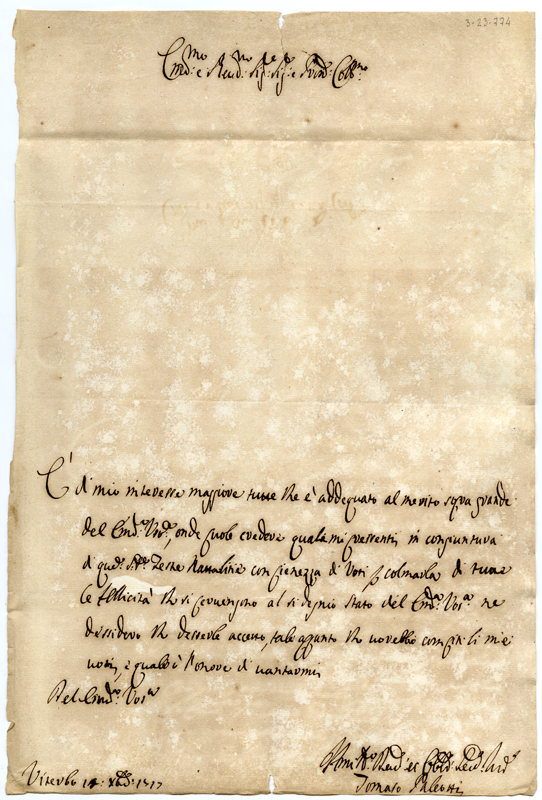 3-23-774
Em.mo e Rev.mo Sig.r Sig.r e P.ron Col.mo
E' di mio interesse maggiore tutto che è addequato al merito sopra grande
del Em.a V.ra, onde puole credere quale mi presenti in conpiuntura
di que. S.te Feste Nattalizie con pienezza di Voti p colmarla di tutte
le fellicità che si convengono al si degnio stato del Em.a Vos.a ne
dessidero che desserle accetto, tale appunto che verebbe compiti li miei
voti, e quale è l'onore di vantarmi
Del Em.a Vos.a
Viterbo 14: Xbr: 1717
Tomaso